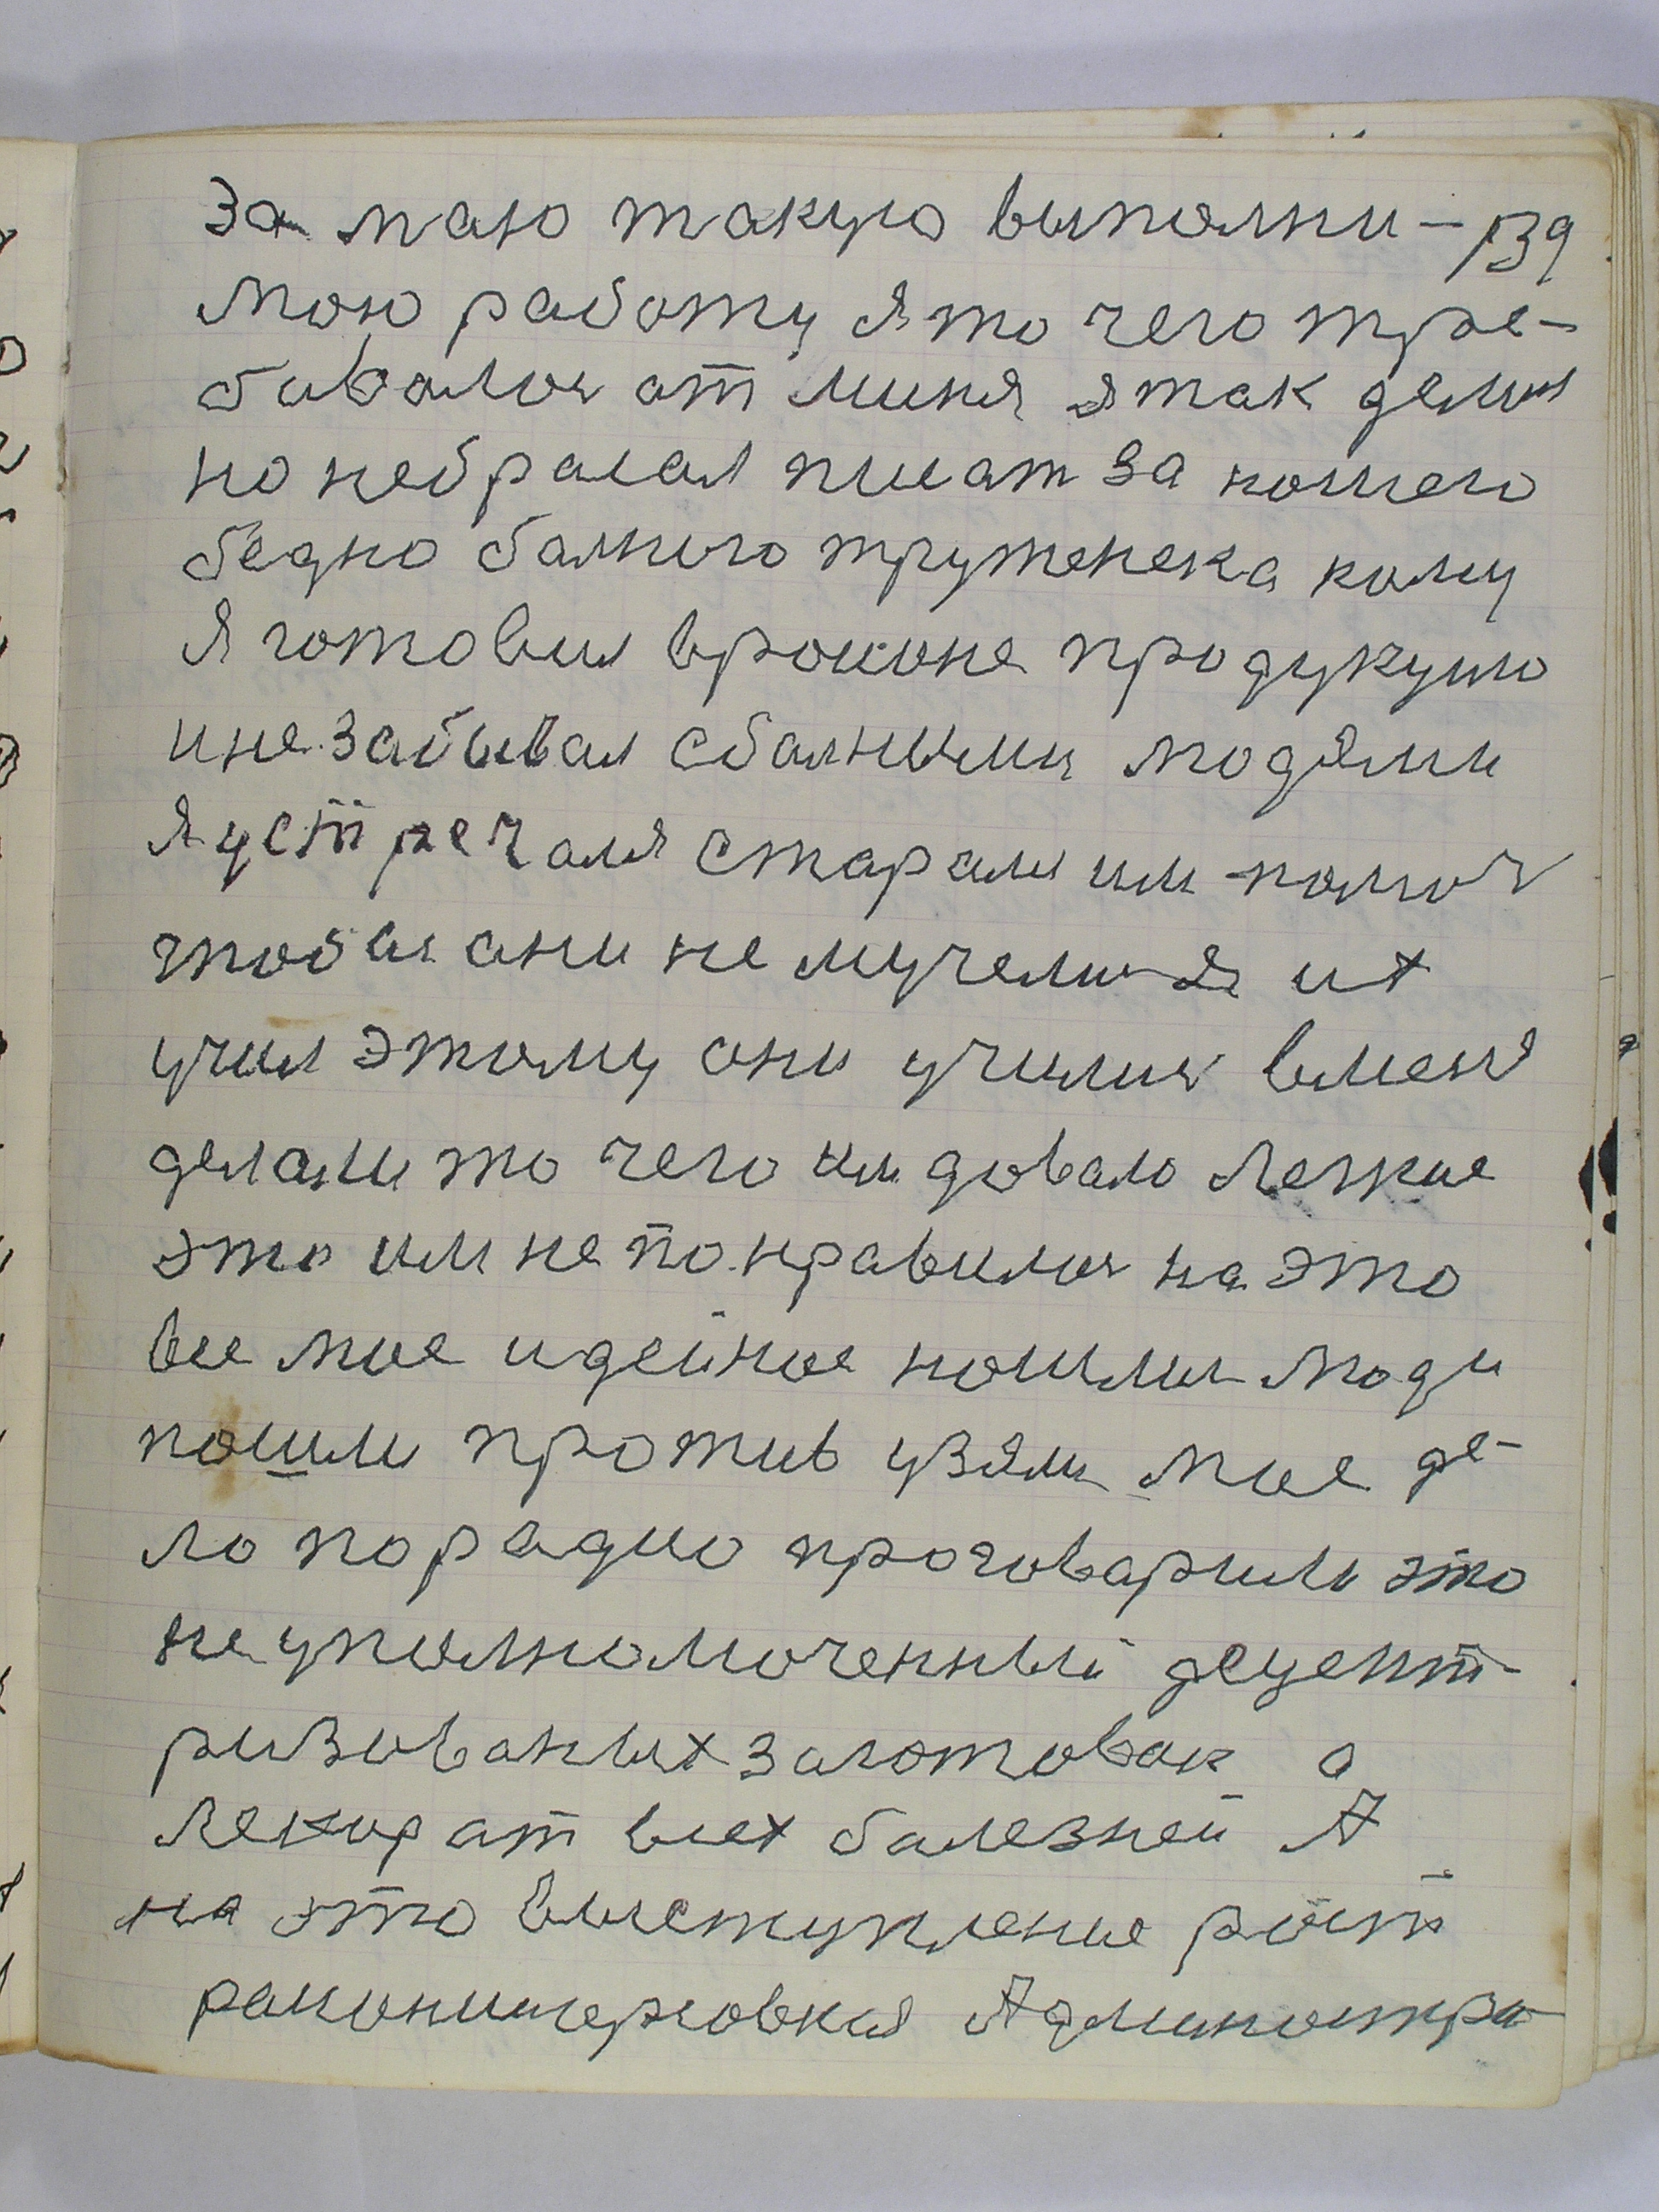 За маю такую выполни- 139
мою работу я то чего тре-
бивалось ат миня я так делил
но небрасал писат за ношего
бедно балного труженека кому
Я готовил врошоне продукцию
и не забывал сбалными людями
Я устречаля старалы им помоч
чтобы ани не мучелися их
учил этому они училис вмен
делали то чего им довало легкие
это им не понравилос на это
все мое идейное нашлис люди
пошли против узяли мое де-
ло по радио проговарили это
не уполномоченный децент-
ризованых заготовак а
лекор ат всех балезней А
на это выступление рост
Админостра-